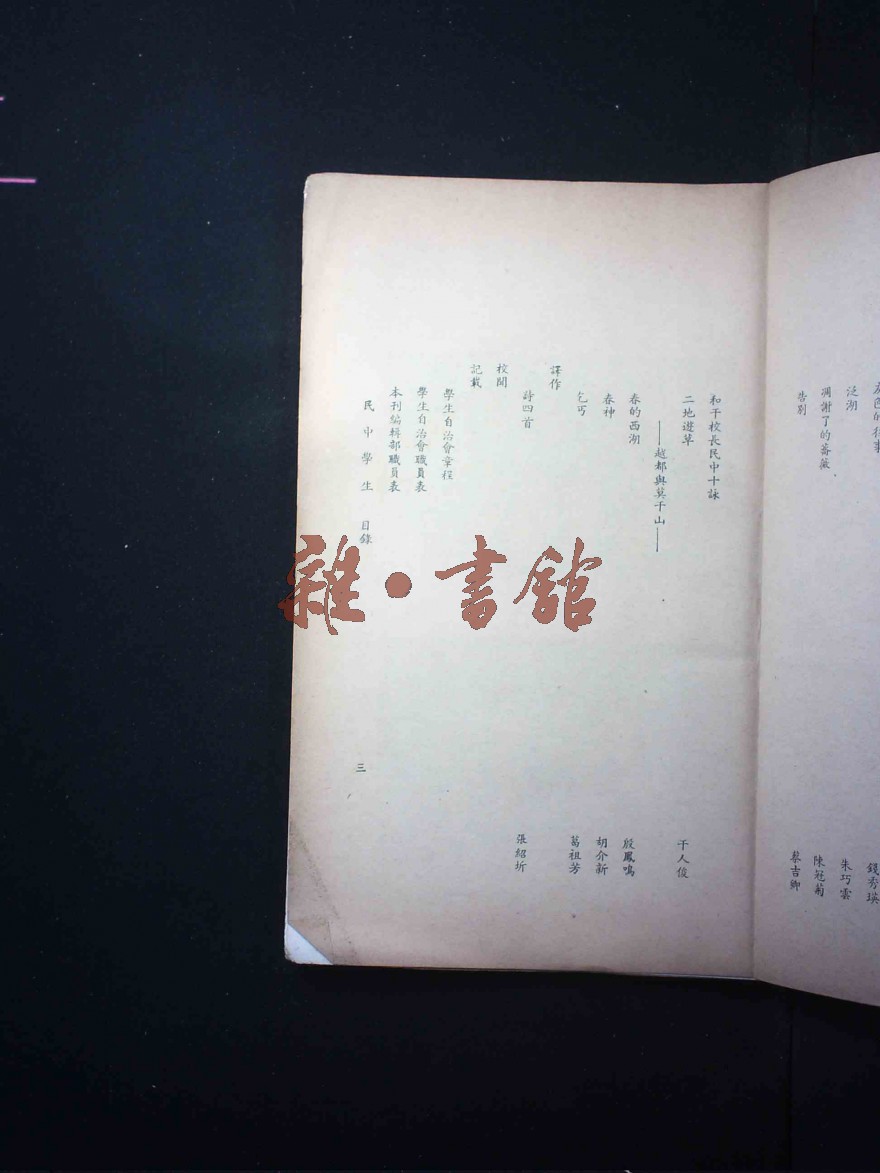 灰色的往事　錢秀瑛
泛湖　朱巧雲
凋謝了的薔薇　陳冠菊
告別　蔡吉卿
和干校長民中十詠
二地遊草　干人俊
——越都與莫干山——
春的西湖　殷鳳鳴
春神　胡介新
乞丐　葛祖芳
譯作
詩四首　張紹圻
校聞
記載
學生自治會章程
學生自治會職員表
本刊編輯部職員表
民中學生　目錄　三
雜·書館